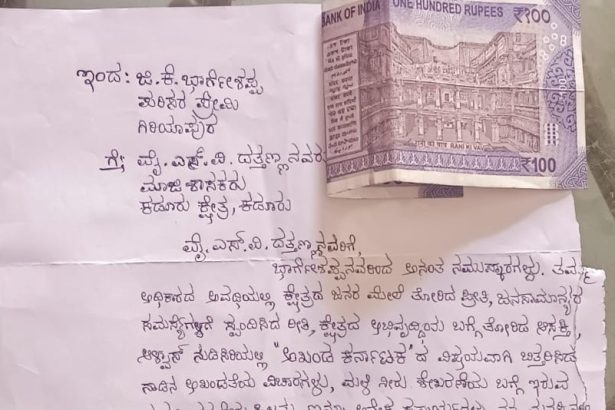 BANK OF INDIA ONE HUNDRED RUPEES ₹१००
RANI KI VAV
₹100
ಇಂದ: ಜಿ.ಕೆ.ಭಾರ್ಗೇಶಪ್ಪ
ಪರಿಸರ ಪ್ರೇಮಿ
ಗಿರಿಯಾಪುರ
ಗೆ: ವೈ.ಎಸ್.ವಿ. ದತ್ತಣ್ಣನವರು
ಮಾಜಿ ಶಾಸಕರು
ಕಡೂರು ಕ್ಷೇತ್ರ, ಕಡೂರು
ವೈ.ಎಸ್.ವಿ. ದತ್ತಣ್ಣನವರಿಗೆ,
ಭಾರ್ಗೇಶಪ್ಪನವರಿಂದ ಅನಂತ ನಮಸ್ಕಾರಗಳು. ತಮ್ಮ
ಅಧಿಕಾರದ ಅವಧಿಯಲ್ಲಿ ಕ್ಷೇತ್ರದ ಜನರ ಮೇಲೆ ತೋರಿದ ಪ್ರೀತಿ, ಜನಸಾಮಾನ್ಯರ
ಸಮಸ್ಯೆಗಳಿಗೆ ಸ್ಪಂದಿಸಿದ ರೀತಿ, ಕ್ಷೇತ್ರದ ಅಭಿವೃದ್ಧಿಯ ಬಗ್ಗೆ ತೋರಿದ ಆಸಕ್ತಿ,
ಆಳ್ವಾಸ್ ನುಡಿಸಿರಿಯಲ್ಲಿ "ಅಖಂಡ ಕರ್ನಾಟಕ" ದ ವಿಷಯವಾಗಿ ಬಿತ್ತರಿಸಿದ
ನಾಡಿನ ಅಖಂಡತೆಯ ವಿಚಾರಗಳು, ಮಳೆ ನೀರು ಶೇಖರಣೆಯ ಬಗ್ಗೆ ಇರುವ